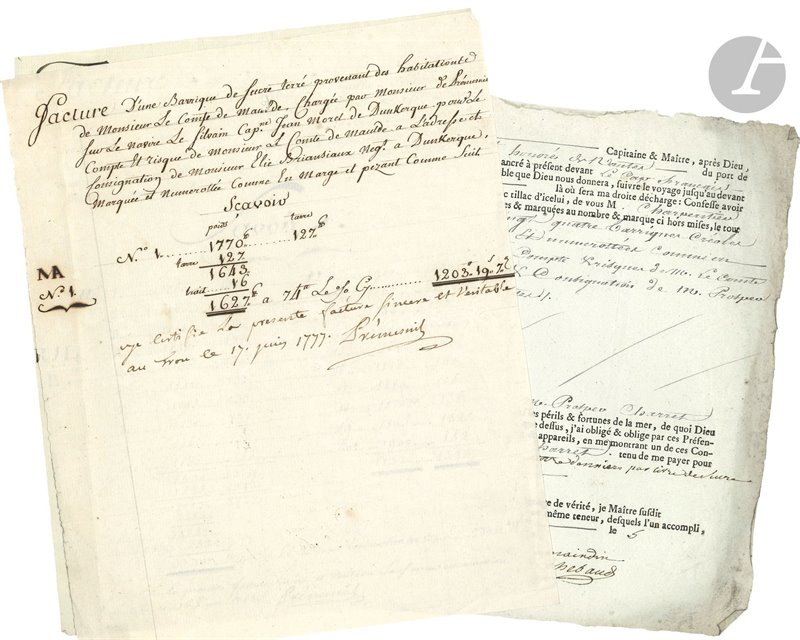 Facture D'une Barrique de sucre terré provenant des habitations de
de Monsieur Le Comte de Maulde, Chargée par Monsieur de
sur le Navire Le Silvain Cap.ne Jean Morel de Dunkerque pour le
Compte Et risque de Monsieur Le Comte de Maulde a L'adresse et
Consignation de Monsieur Elie Briansiaux Neg.t a Dunkerque,
Marquée et Numerottée Comme En Marge et pezant Comme Suit
Scavoir
poids tarre
N.o 1. 1770 127
tarre 127
1643
MA
N.o 1. trait 16
1627 a 74 Le % G 1203. 19. 7
Je Certifie La presente facture Sincere et Veritable
au trou le 17. juin 1777. Prémesnil
Capitaine & Maître, après Dieu,
honorés de Nantes du port de
ancré à présent devant Le Cap français
ble que Dieu nous donnera, suivre le voyage jusqu'au devant
là où sera ma droite décharge : Confesse avoir
c tillac d'icelui, de vous M. Charpentier
es & marquées au nombre & marque ci hors mises, le tout
vingt quatre Barriques
et numerottées Comme en
Compte & risques de Mr. Le Comte
& Consignation de m. Prosper
me. Prosper Charret
es périls & fortunes de la mer, de quoi Dieu
e dessus, j'ai obligé & oblige par ces Présen-
appareils, en me montrant un de ces Con-
Charret. tenu de me payer pour
deniers par livre de sucre
re de vérité, je Maître susdit
même teneur, desquels l'un accompli,
le 5